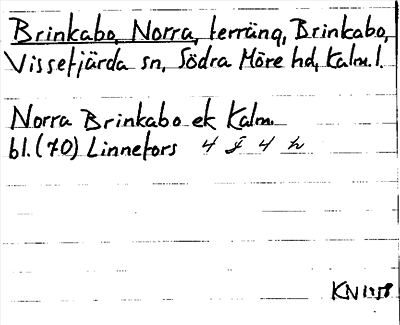 Brinkabo, Norra, terräng, Brinkabo,
Vissefjärda sn, Södra Möre hd, Kalm. l.
Norra Brinkabo ek Kalm.
bl. (70) Linnefors 4 J 4 h
KN 1958